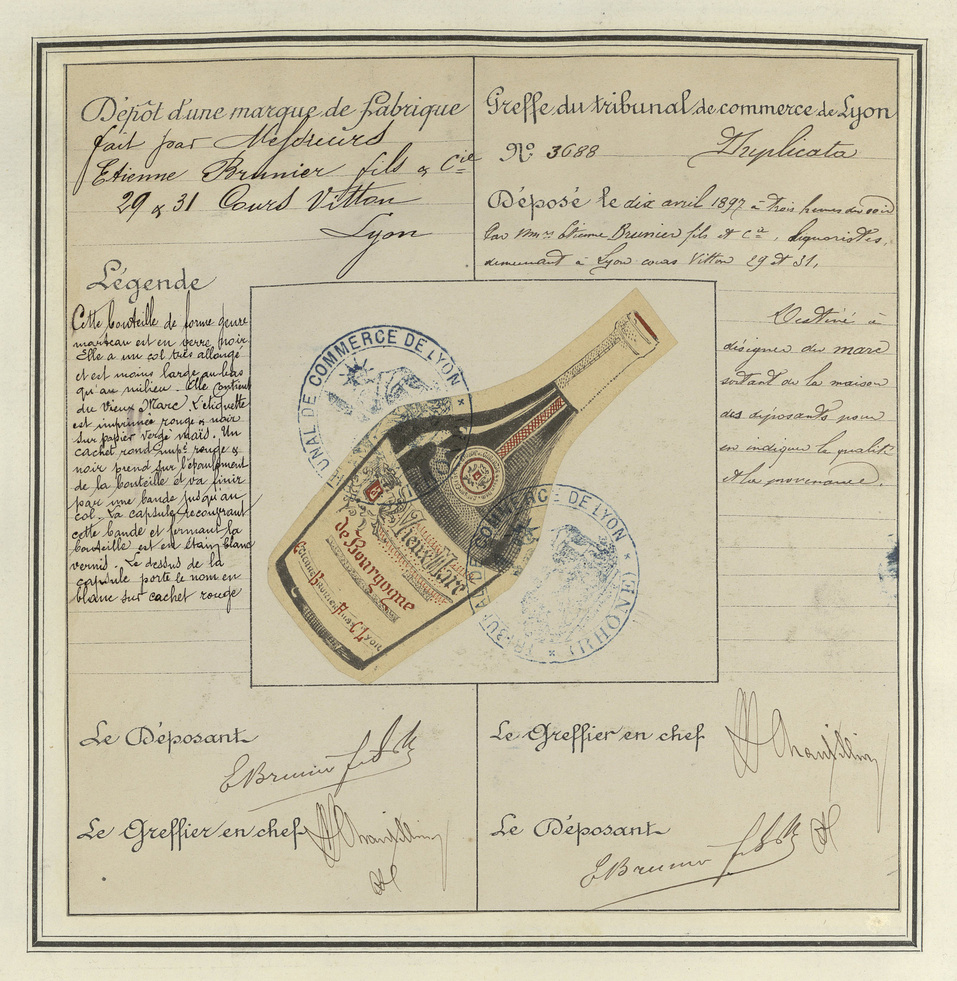 Dépôt d'une marque de fabrique
fait par Messieurs
Etienne Brunier fils & Cie
29 & 31 Cours Vitton
Lyon
Greffe du tribunal de commerce de Lyon
N° 3688 Duplicata
Déposé le dix avril 1897 à trois heures du soir
Par MMrs Etienne Brunier fils et Cie, liquoristes,
demeurant à Lyon cours Vitton 29 et 31,
Légende
Cette bouteille de forme genre
marteau est en verre noir
Elle a un col très allongé
et est moins large au bas
qu'au milieu. Elle contient
du Vieux Marc. L'etiquette
est imprimée rouge & noir
sur papier vergé maïs. Un
cachet rond impé rouge &
noir prend sur l'épaulement
de la bouteille et va finir
par une bande jusqu'au
col. La capsule recouvrant
cette bande et fermant la
bouteille est en étain blanc
vernis. Le dessus de la
capsule porte le nom en
blanc sur cachet rouge
Destiné à
désigner du marc
sortant de la maison
des déposants pour
en indiquer la qualité
et la provenance.
TRIBUNAL DE COMMERCE DE LYON
Vieux Marc
de Bourgogne
Etienne Brunier Fils & Cie Lyon
TRIBUNAL DE COMMERCE DE LYON
(RHÔNE)
Le Déposant
E Brunier fils & Cie
Le Greffier en chef
Le Greffier en chef
Le Déposant
E Brunier fils & Cie